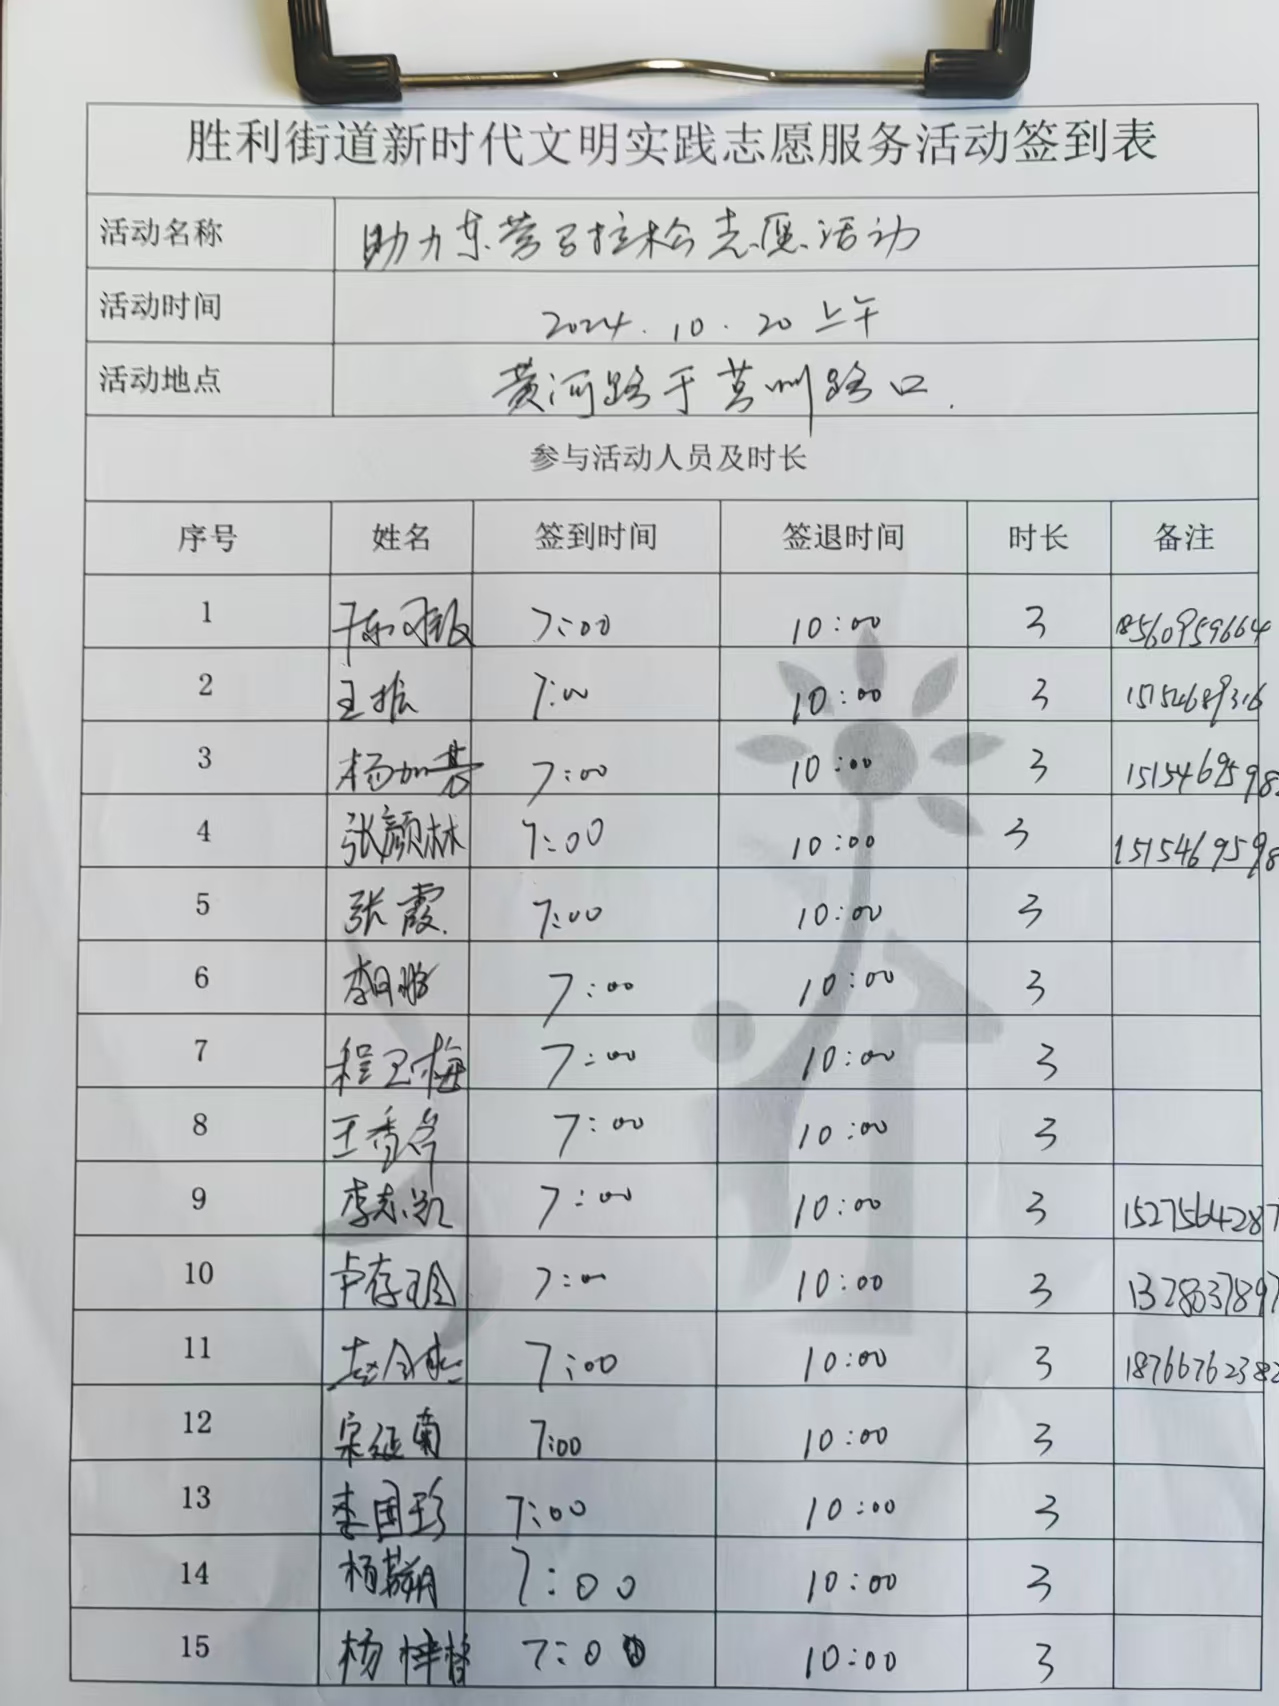 胜利街道新时代文明实践志愿服务活动签到表
活动名称 助力东营马拉松志愿活动
活动时间 2024.10.20上午
活动地点 黄河路于莒州路口.
参与活动人员及时长
序号 姓名 签到时间 签退时间 时长 备注
1 7:00 10:00 3 18560959664
2 王振 7:00 10:00 3 15154689316
3 杨加慕 7:00 10:00 3 1515469598
4 张颜林 7:00 10:00 3 1515469598
5 张霞. 7:00 10:00 3
6 7:00 10:00 3
7 程卫梅 7:00 10:00 3
8 7:00 10:00 3
9 李志凯 7:00 10:00 3 15275642287
10 卢存玲 7:00 10:00 3 13280371897
11 7:00 10:00 3 18766762382
12 宋延菊 7:00 10:00 3
13 李国珍 7:00 10:00 3
14 7:00 10:00 3
15 7:00 10:00 3